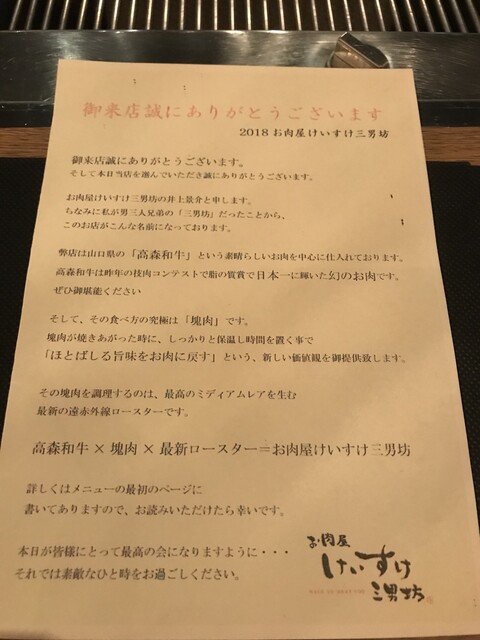 御来店誠にありがとうございます
2018 お肉屋けいすけ三男坊
御来店誠にありがとうございます。
そして本日当店を選んでいただき誠にありがとうございます。
お肉屋けいすけ三男坊の井上景介と申します。
ちなみに私が男三人兄弟の「三男坊」だったことから、
このお店がこんな名前になっております。
弊店は山口県の「高森和牛」という素晴らしいお肉を中心に仕入れております。
高森和牛は昨年の枝肉コンテストで脂の質賞で日本一に輝いた幻のお肉です。
ぜひ御堪能ください
そして、その食べ方の究極は「塊肉」です。
塊肉が焼きあがった時に、しっかりと保温し時間を置く事で
「ほとばしる旨味をお肉に戻す」という、新しい価値観を御提供致します。
その塊肉を調理するのは、最高のミディアムレアを生む
最新の遠赤外線ロースターです。
高森和牛×塊肉×最新ロースター＝お肉屋けいすけ三男坊
詳しくはメニューの最初のページに
書いてありますので、お読みいただけたら幸いです。
本日が皆様にとって最高の会になりますように・・・
それでは素敵なひと時をお過ごしください。
お肉屋
けいすけ
三男坊